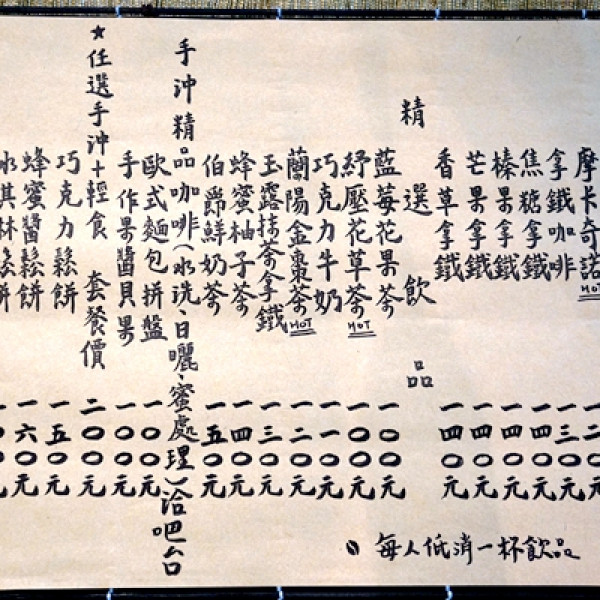 摩卡奇諾 HOT 一二〇元
拿鐵咖啡 一三〇元
焦糖拿鐵 一四〇元
榛果拿鐵 一四〇元
芒果拿鐵 一四〇元
香草拿鐵 一四〇元
精選飲品
藍莓花果茶 一〇〇元
紓壓花草茶 HOT 一〇〇元
巧克力牛奶 一一〇元
蘭陽金棗茶 HOT 一二〇元
玉露抹茶拿鐵 一三〇元
蜂蜜柚子茶 一四〇元
伯爵鮮奶茶 一五〇元
手沖精品咖啡(水洗、日曬、蜜處理)洽吧台
歐式麵包拼盤 一〇〇元
手作果醬貝果 一〇〇元
★任選手沖+輕食 套餐價 二〇〇元
巧克力鬆餅 一五〇元
蜂蜜醬鬆餅 一六〇元
冰淇淋鬆餅
每人低消一杯飲品